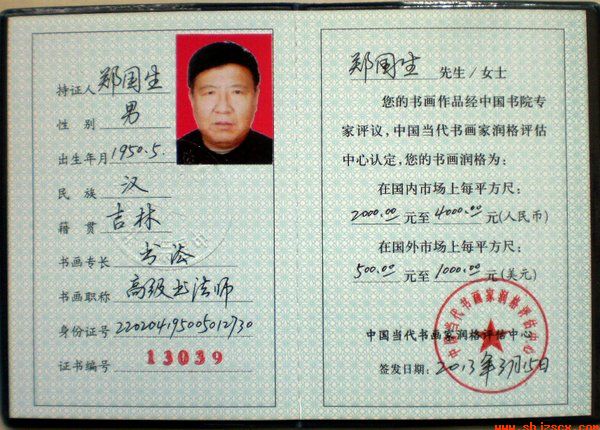 持证人 郑国生
性 别 男
出生年月 1950.5.
民 族 汉
籍 贯 吉林
书画专长 书法
书画职称 高级书法师
身份证号 220204195005012730
证书编号 13039
郑国生 先生/女士
您的书画作品经中国书院专
家评议，中国当代书画家润格评估
中心认定，您的书画润格为：
在国内市场上每平方尺：
2000.00 元至 4000.00 元(人民币)
在国外市场上每平方尺：
500.00 元至 1000.00 元(美元)
中国当代书画家润格评估中心
中国当代书画家润格评估中心
签发日期： 2013年3月15日
www.shjzscx.com